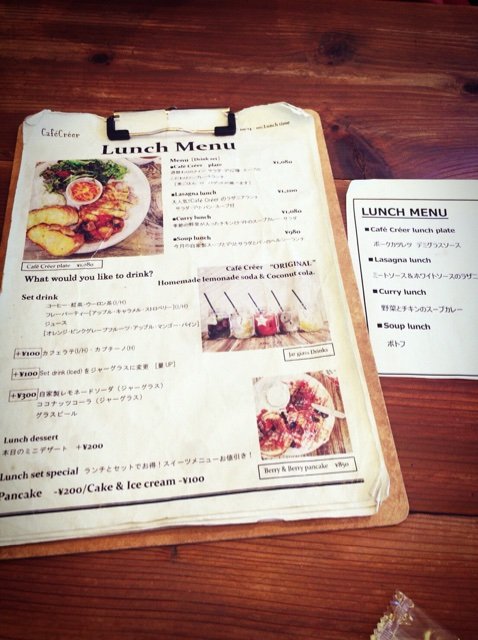 CaféCréer
Lunch time
Lunch Menu
Menu [Drink set]
■Café Créer plate ¥1,080
■Lasagna lunch ¥1,100
大人気!Café Créer のラザニアランチ
サラダ・アバン・スープ付
■Curry lunch ¥1,080
季節の野菜が入ったチキンとトマトのスープカレー サラダ
■Soup lunch ¥980
Café Créer plate ¥1,080
What would you like to drink?
Café Créer "ORIGINAL"
Homemade lemonade soda & Coconut cola.
Set drink
コーヒー・紅茶・ウーロン茶(I/H)
フレーバーティー[アップル・キャラメル・ストロベリー](I/H)
ジュース
[オレンジ・ピンクグレープフルーツ・アップル・マンゴー・パイン]
+¥100 カフェラテ(I/H)・カプチーノ(H)
+¥100 Set drink (Iced)をジャーグラスに変更 [量UP]
+¥300 自家製レモネードソーダ (ジャーグラス)
ココナッツコーラ (ジャーグラス)
グラスビール
Jar glass Drinks
Lunch dessert
本日のミニデザート +¥200
Berry & Berry pancake ¥850
Lunch set special ランチとセットでお得!スイーツメニューお値引き!
Pancake -¥200/Cake & Ice cream -¥100
LUNCH MENU
■Café Créer lunch plate
ポークカツレツ デミグラスソース
■Lasagna lunch
ミートソース&ホワイトソースのラザニ
■Curry lunch
野菜とチキンのスープカレー
■Soup lunch
ポトフ